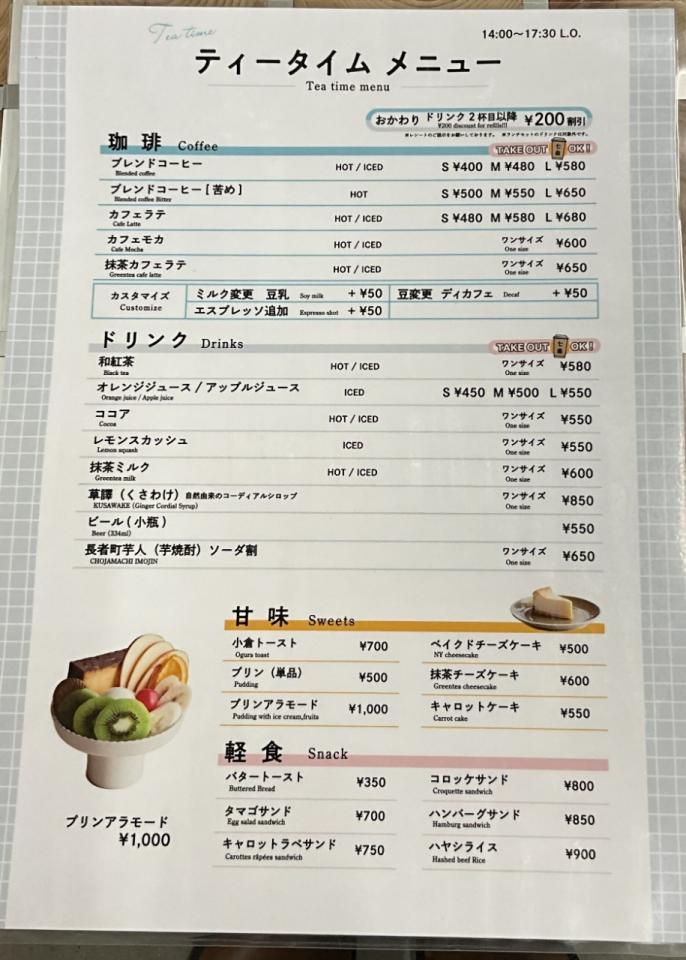 Tea time
14:00〜17:30 L.O.
ティータイム メニュー
Tea time menu
おかわり ドリンク2杯目以降 ¥200割引
¥200 discount for refills!!!
※レシートのご提示をお願いしております。 ※ランチセットのドリンクは対象外です。
珈琲 Coffee
TAKE OUT OK!
ブレンドコーヒー HOT / ICED S ¥400 M ¥480 L ¥580
Blended coffee
ブレンドコーヒー [ 苦め ] HOT S ¥500 M ¥550 L ¥650
Blended coffee Bitter
カフェラテ HOT / ICED S ¥480 M ¥580 L ¥680
Cafe Latte
カフェモカ HOT / ICED ワンサイズ ¥600
Cafe Mocha One size
抹茶カフェラテ HOT / ICED ワンサイズ ¥650
Greentea cafe latte One size
カスタマイズ ミルク変更 豆乳 Soy milk + ¥50 豆変更 ディカフェ Decaf + ¥50
Customize エスプレッソ追加 Espresso shot + ¥50
ドリンク Drinks
TAKE OUT OK!
和紅茶 HOT / ICED ワンサイズ ¥580
Black tea One size
オレンジジュース / アップルジュース ICED S ¥450 M ¥500 L ¥550
Orange juice / Apple juice
ココア HOT / ICED ワンサイズ ¥550
Cocoa One size
レモンスカッシュ ICED ワンサイズ ¥550
Lemon squash One size
抹茶ミルク HOT / ICED ワンサイズ ¥600
Greentea milk One size
草譯（くさわけ）自然由来のコーディアルシロップ ワンサイズ ¥850
KUSAWAKE (Ginger Cordial Syrup) One size
ビール ( 小瓶 ) ¥550
Beer (334ml)
長者町芋人（芋焼酎）ソーダ割 ワンサイズ ¥650
CHOJAMACHI IMOJIN One size
甘味 Sweets
小倉トースト ¥700
Ogura toast
プリン（単品） ¥500
Pudding
プリンアラモード ¥1,000
Pudding with ice cream,fruits
ベイクドチーズケーキ ¥500
NY cheesecake
抹茶チーズケーキ ¥600
Greentea cheesecake
キャロットケーキ ¥550
Carrot cake
軽食 Snack
バタートースト ¥350
Buttered Bread
タマゴサンド ¥700
Egg salad sandwich
キャロットラペサンド ¥750
Carottes râpées sandwich
コロッケサンド ¥800
Croquette sandwich
ハンバーグサンド ¥850
Hamburg sandwich
ハヤシライス ¥900
Hashed beef Rice
プリンアラモード
¥1,000